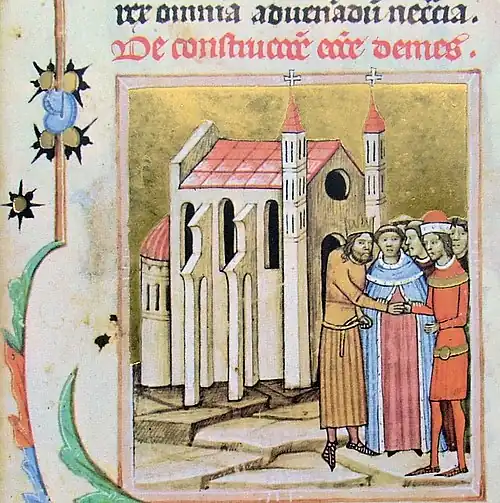 rex omnia aduen̄adū nec̄cia.
De construccōe ecc̄e demes.